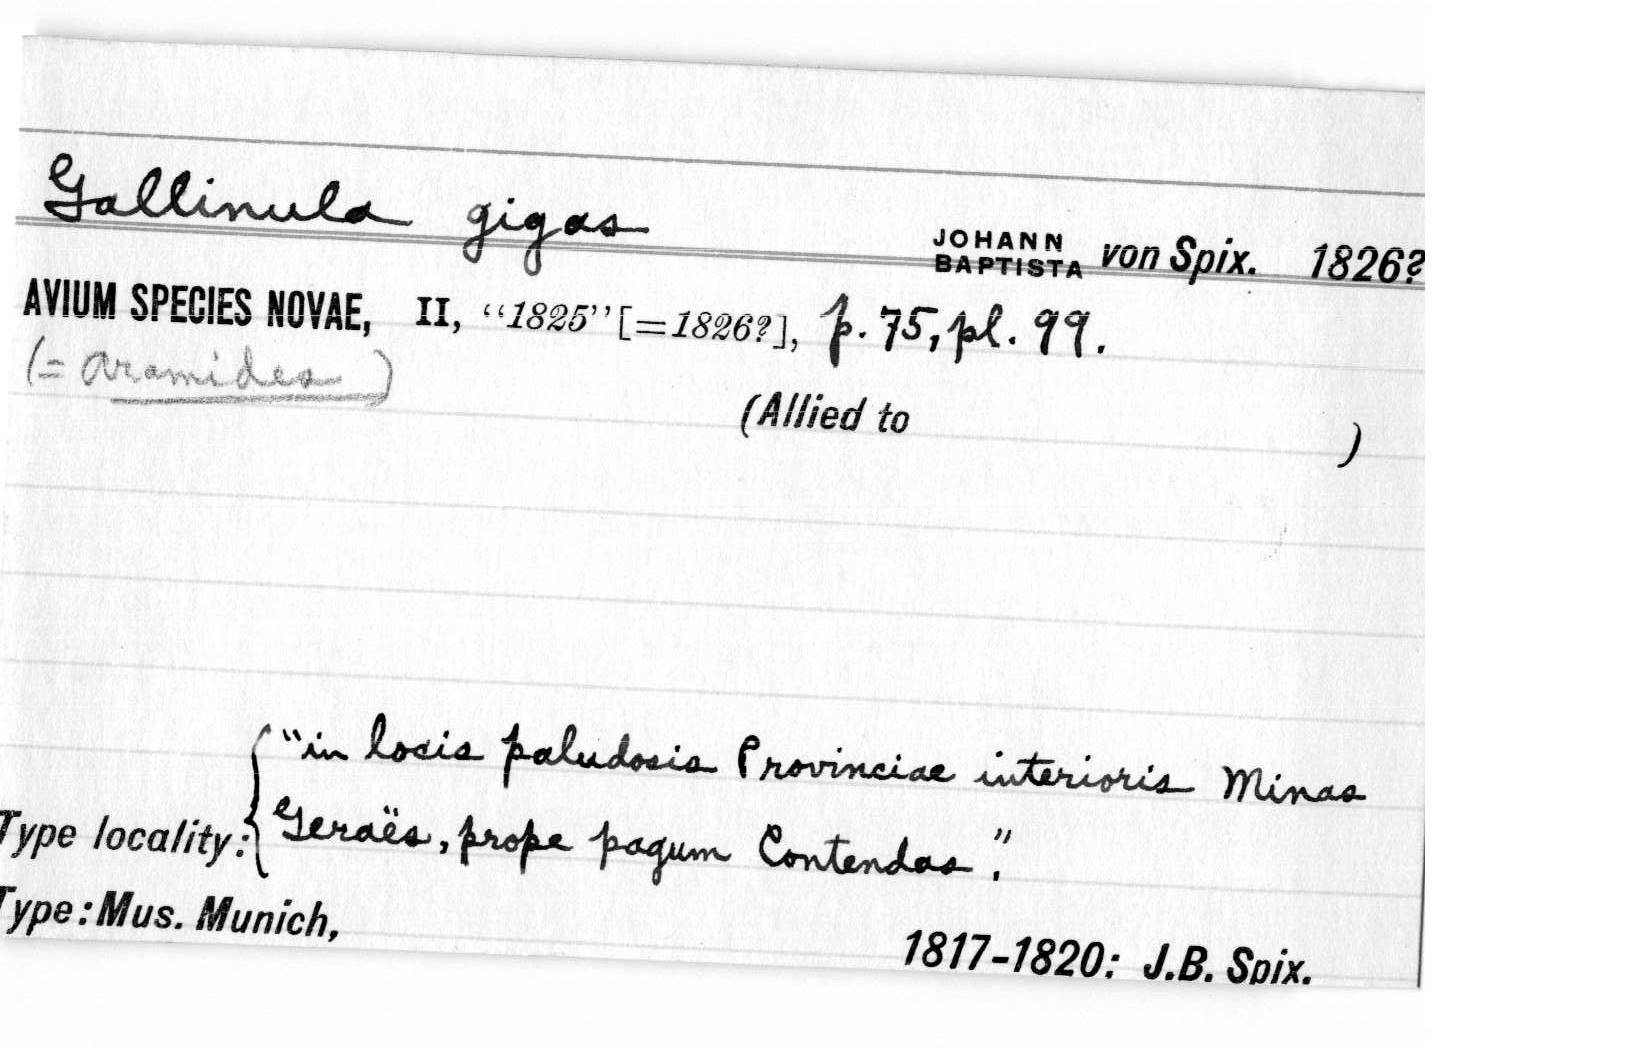 Gallinula gigas
JOHANN BAPTISTA von Spix. 1826?
AVIUM SPECIES NOVAE, II, "1825" [=1826?], p. 75, pl. 99.
(= Aramides)
(Allied to )
Type locality: { "in locis paludosis Provinciae interioris Minas
Geraës, prope pagum Contendas."
Type: Mus. Munich,
1817-1820: J.B. Spix.